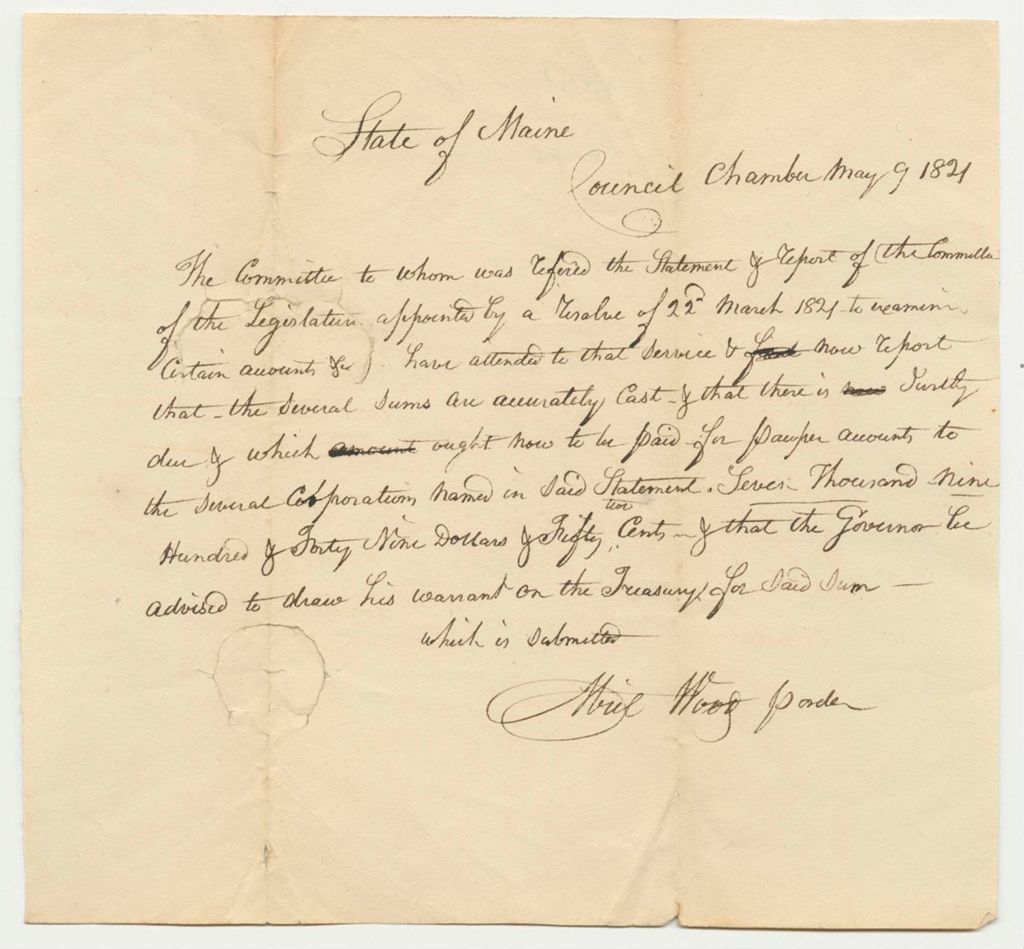 State of Maine
Council Chamber May 9 1821
The Committee to whom was refered the Statement & report of (the Committee
of the Legislature appointed by a resolve of 22d March 1821 to examine
Certain accounts &c) have attended to that service & now report
that the several sums are accurately Cast & that there is Justly
due & which amount ought now to be paid for pauper accounts to
the several Corporations named in said Statement. Seven Thousand Nine
Hundred & Forty Nine Dollars & Fifty two Cents & that the Governor be
advised to draw his warrant on the Treasury for said sum
which is submitted
Abiel Wood p order